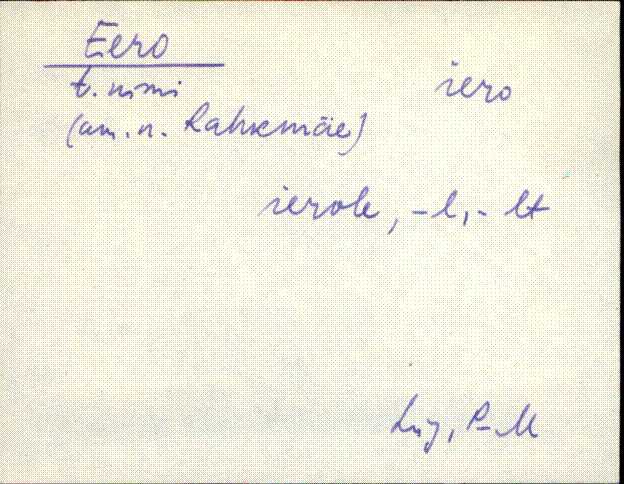 Eero
t. nimi iero
(am. n. Rahkemäe)
ierole, -l, - lt
Lüg, P-M